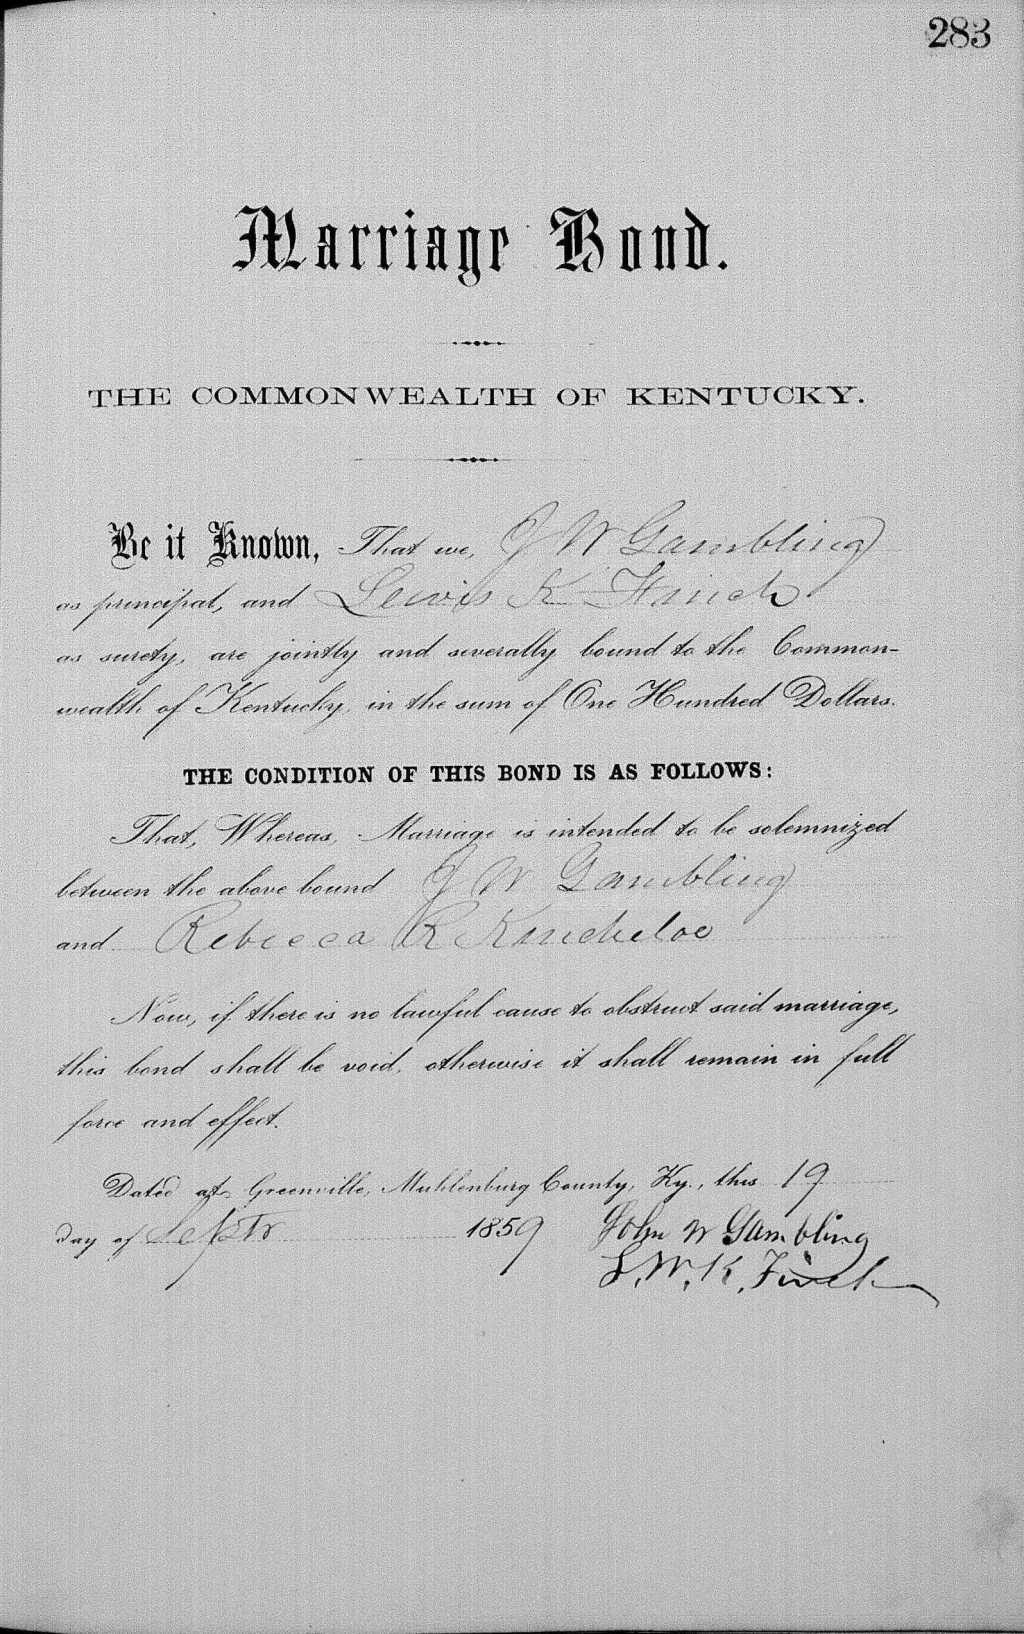 283
Marriage Bond.
THE COMMONWEALTH OF KENTUCKY.
Be it Known, That we, J W Gambling
as principal, and Lewis K Finch
as surety, are jointly and severally bound to the Common-
wealth of Kentucky, in the sum of One Hundred Dollars.
THE CONDITION OF THIS BOND IS AS FOLLOWS:
That, Whereas, Marriage is intended to be solemnized
between the above bound J W Gambling
and Rebecca R Kincheloe
Now, if there is no lawful cause to obstruct said marriage,
this bond shall be void, otherwise it shall remain in full
force and effect.
Dated at Greenville, Muhlenburg County, Ky., this 19
day of Septr 1859 John W Gambling
L. W. K. Finch